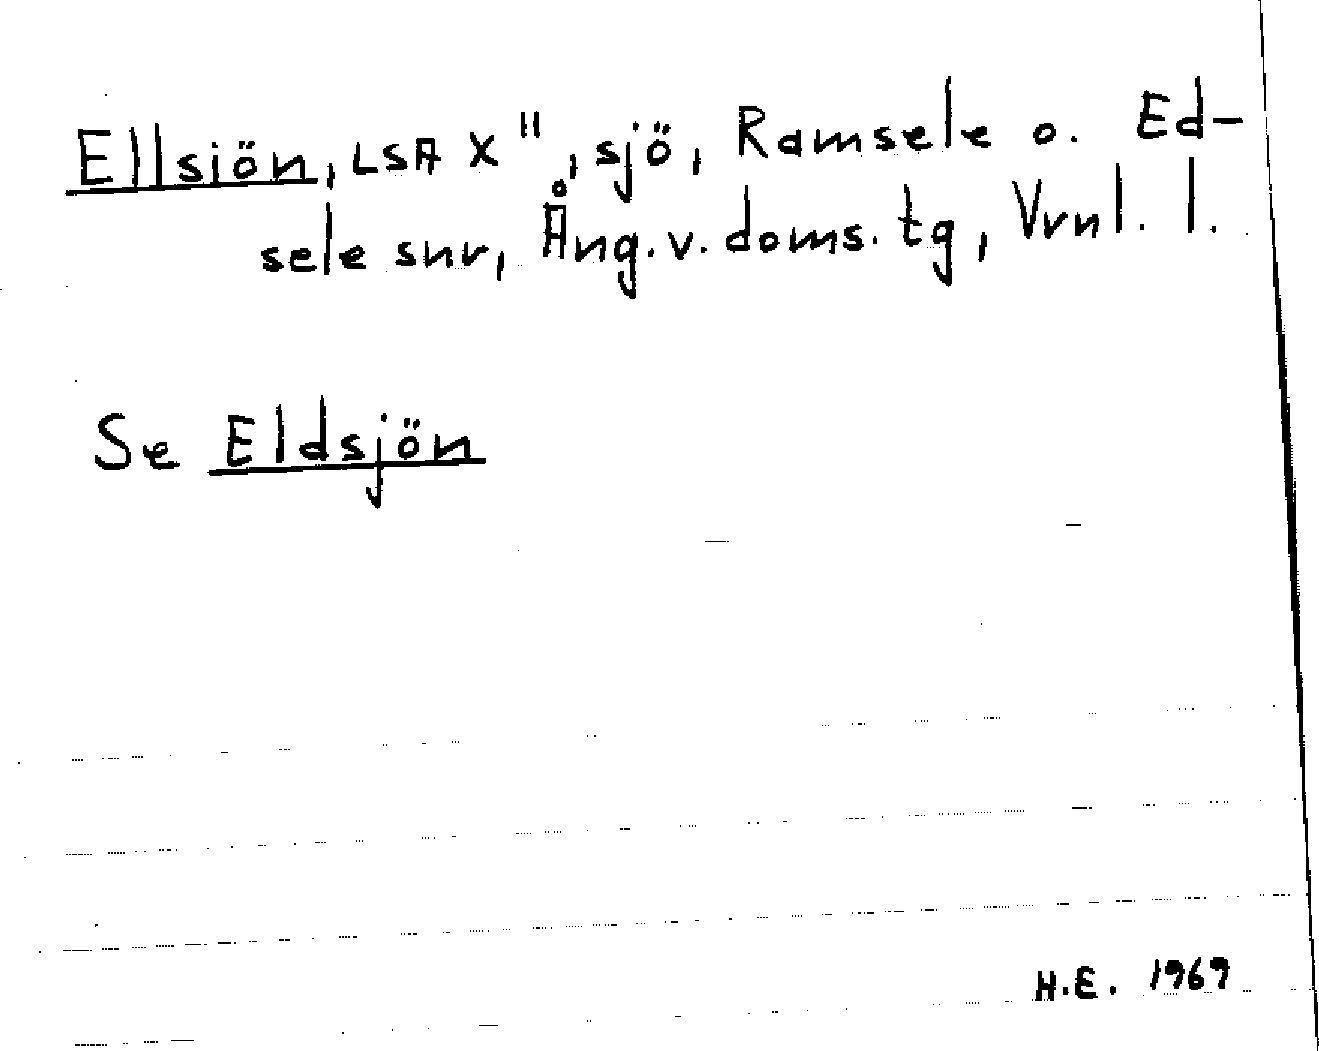 Ellsiön, LSA X", sjö, Ramsele o. Ed-
sele snr, Ång. v. doms. tg, Vrnl. l.
Se Eldsjön
H.E. 1969